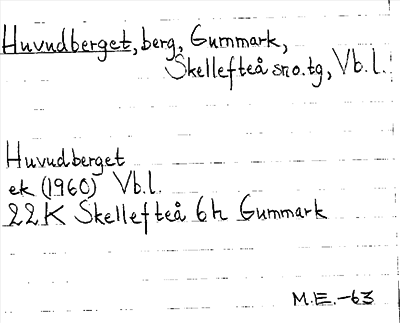 Huvudberget, berg, Gummark,
Skellefteå sn o. tg, Vb. l.
Huvudberget
ek (1960) Vb. l.
22K Skellefteå 6h Gummark
M.E.-63